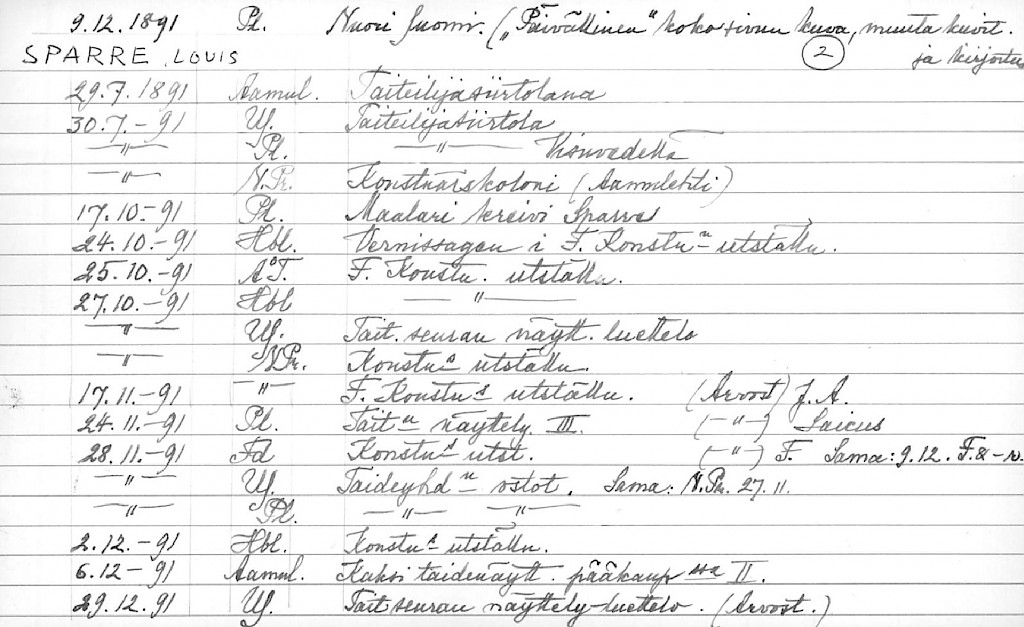 9.12.1891 Pl. Nuori Suomi. („Päivällinen" kokosivun kuva, muuta kuvit.
SPARRE, LOUIS 2 ja kirjoitus
29.7.1891 Aamul. Taiteilijasiirtolana
30.7.-91 Uf. Taiteilijasiirtola
—"— Pl. —"— Visuvedellä
—"— N.Pr. Konstnärskoloni (Aamulehti)
17.10-91 Pl. Maalari kreivi Sparre
24.10.-91 Hbl. Vernissagen i F. Konstn~ utställn.
25.10.-91 Å.T. F. Konstn. utställn.
27.10.-91 Hbl —"—
—"— Uf. Tait. seuran näytt. luettelo
—"— N.Pr. Konstn~s utställn.
17.11.-91 —"— F. Konstn~s utställn. (Arvost) J.A.
24.11.-91 Pl. Tait~n näyttely III. (—"—) Laicus
28.11.-91 Fd Konstn~s utst. (—"—) F. Sama: 9.12. F. &-n.
—"— Uf. Taideyhd~n ostot. Sama: N.Pr. 27.11.
—"— Pl. —"— —"—
2.12.-91 Hbl. Konstn~s utställn.
6.12-91 Aamul. Kaksi taidenäytt. pääkaup~ssa II.
29.12.91 Uf. Tait seuran näyttely-luettelo. (Arvost.)